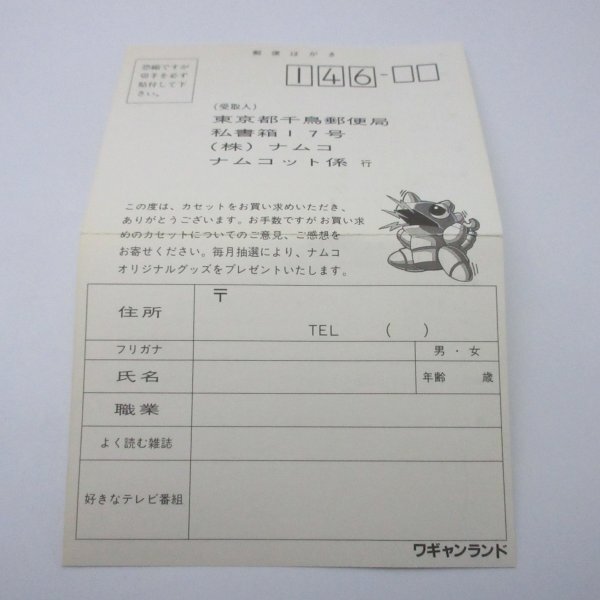 郵便はがき
恐縮ですが
切手を必ず
貼付して下
さい。
146-□□
(受取人)
東京都千鳥郵便局
私書箱17号
(株)ナムコ
ナムコット係 行
この度は、カセットをお買い求めいただき、
ありがとうございます。お手数ですが お買い求
めのカセットについてのご意見、ご感想を
お寄せください。毎月抽選により、ナムコ
オリジナルグッズをプレゼントいたします。
住所 〒
TEL ( )
フリガナ 男・女
氏名 年齢 歳
職業
よく読む雑誌
好きなテレビ番組
ワギャンランド